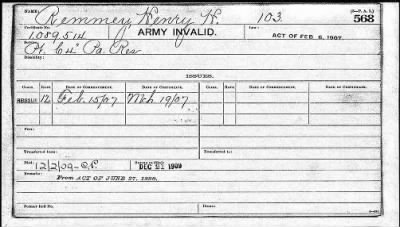 Name: Remmey, Henry H. 103. (3—P. A. I.)
568
Certificate No. ARMY INVALID. ACT OF FEB. 6, 1907
1089514
Pt. C "4" Pa. Res
Disability:
ISSUES.
Class. Rate. Date of Commencement. Date of Certificate. Class. Rate. Date of Commencement. Date of Certificate.
REISSUE 12 Feb. 15/07 Mch 19/07
Fee:
Transferred from: Transferred to:
Died: 12/2/09 DEC 21 1909
Remarks:
From ACT OF JUNE 27, 1890.
Former Roll No. Home: